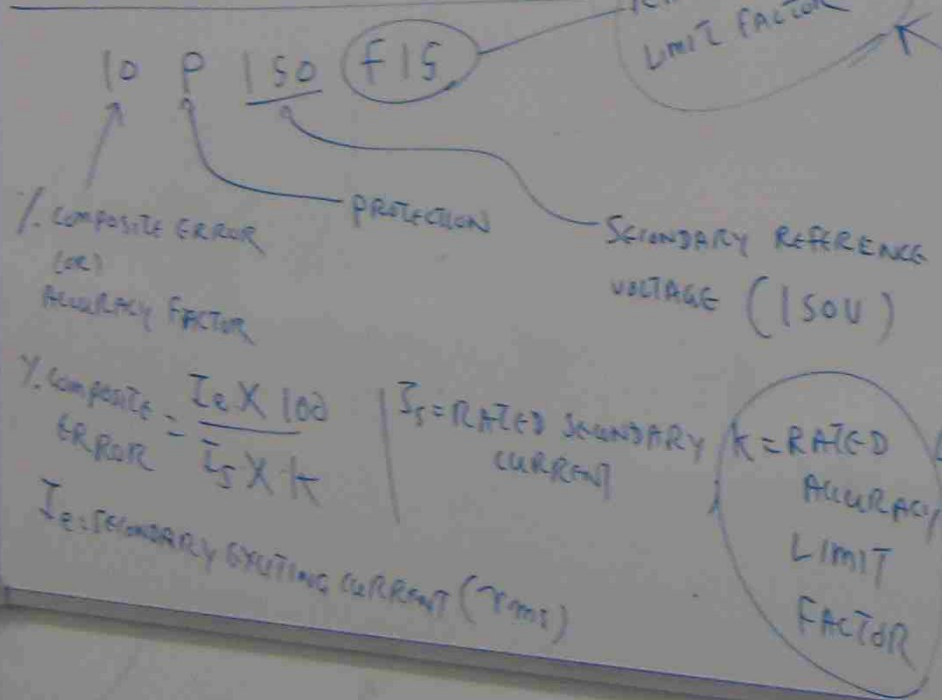 LIMIT FACTOR
10 P 150 F15
% COMPOSITE ERROR
(OR)
ACCURACY FACTOR
PROTECTION
SECONDARY REFERENCE
VOLTAGE (150V)
% COMPOSITE ERROR = Ie X 100 / Is X K
Is = RATED SECONDARY
CURRENT
K = RATED
ACCURACY
LIMIT
FACTOR
Ie = SECONDARY EXCITING CURRENT (rms)